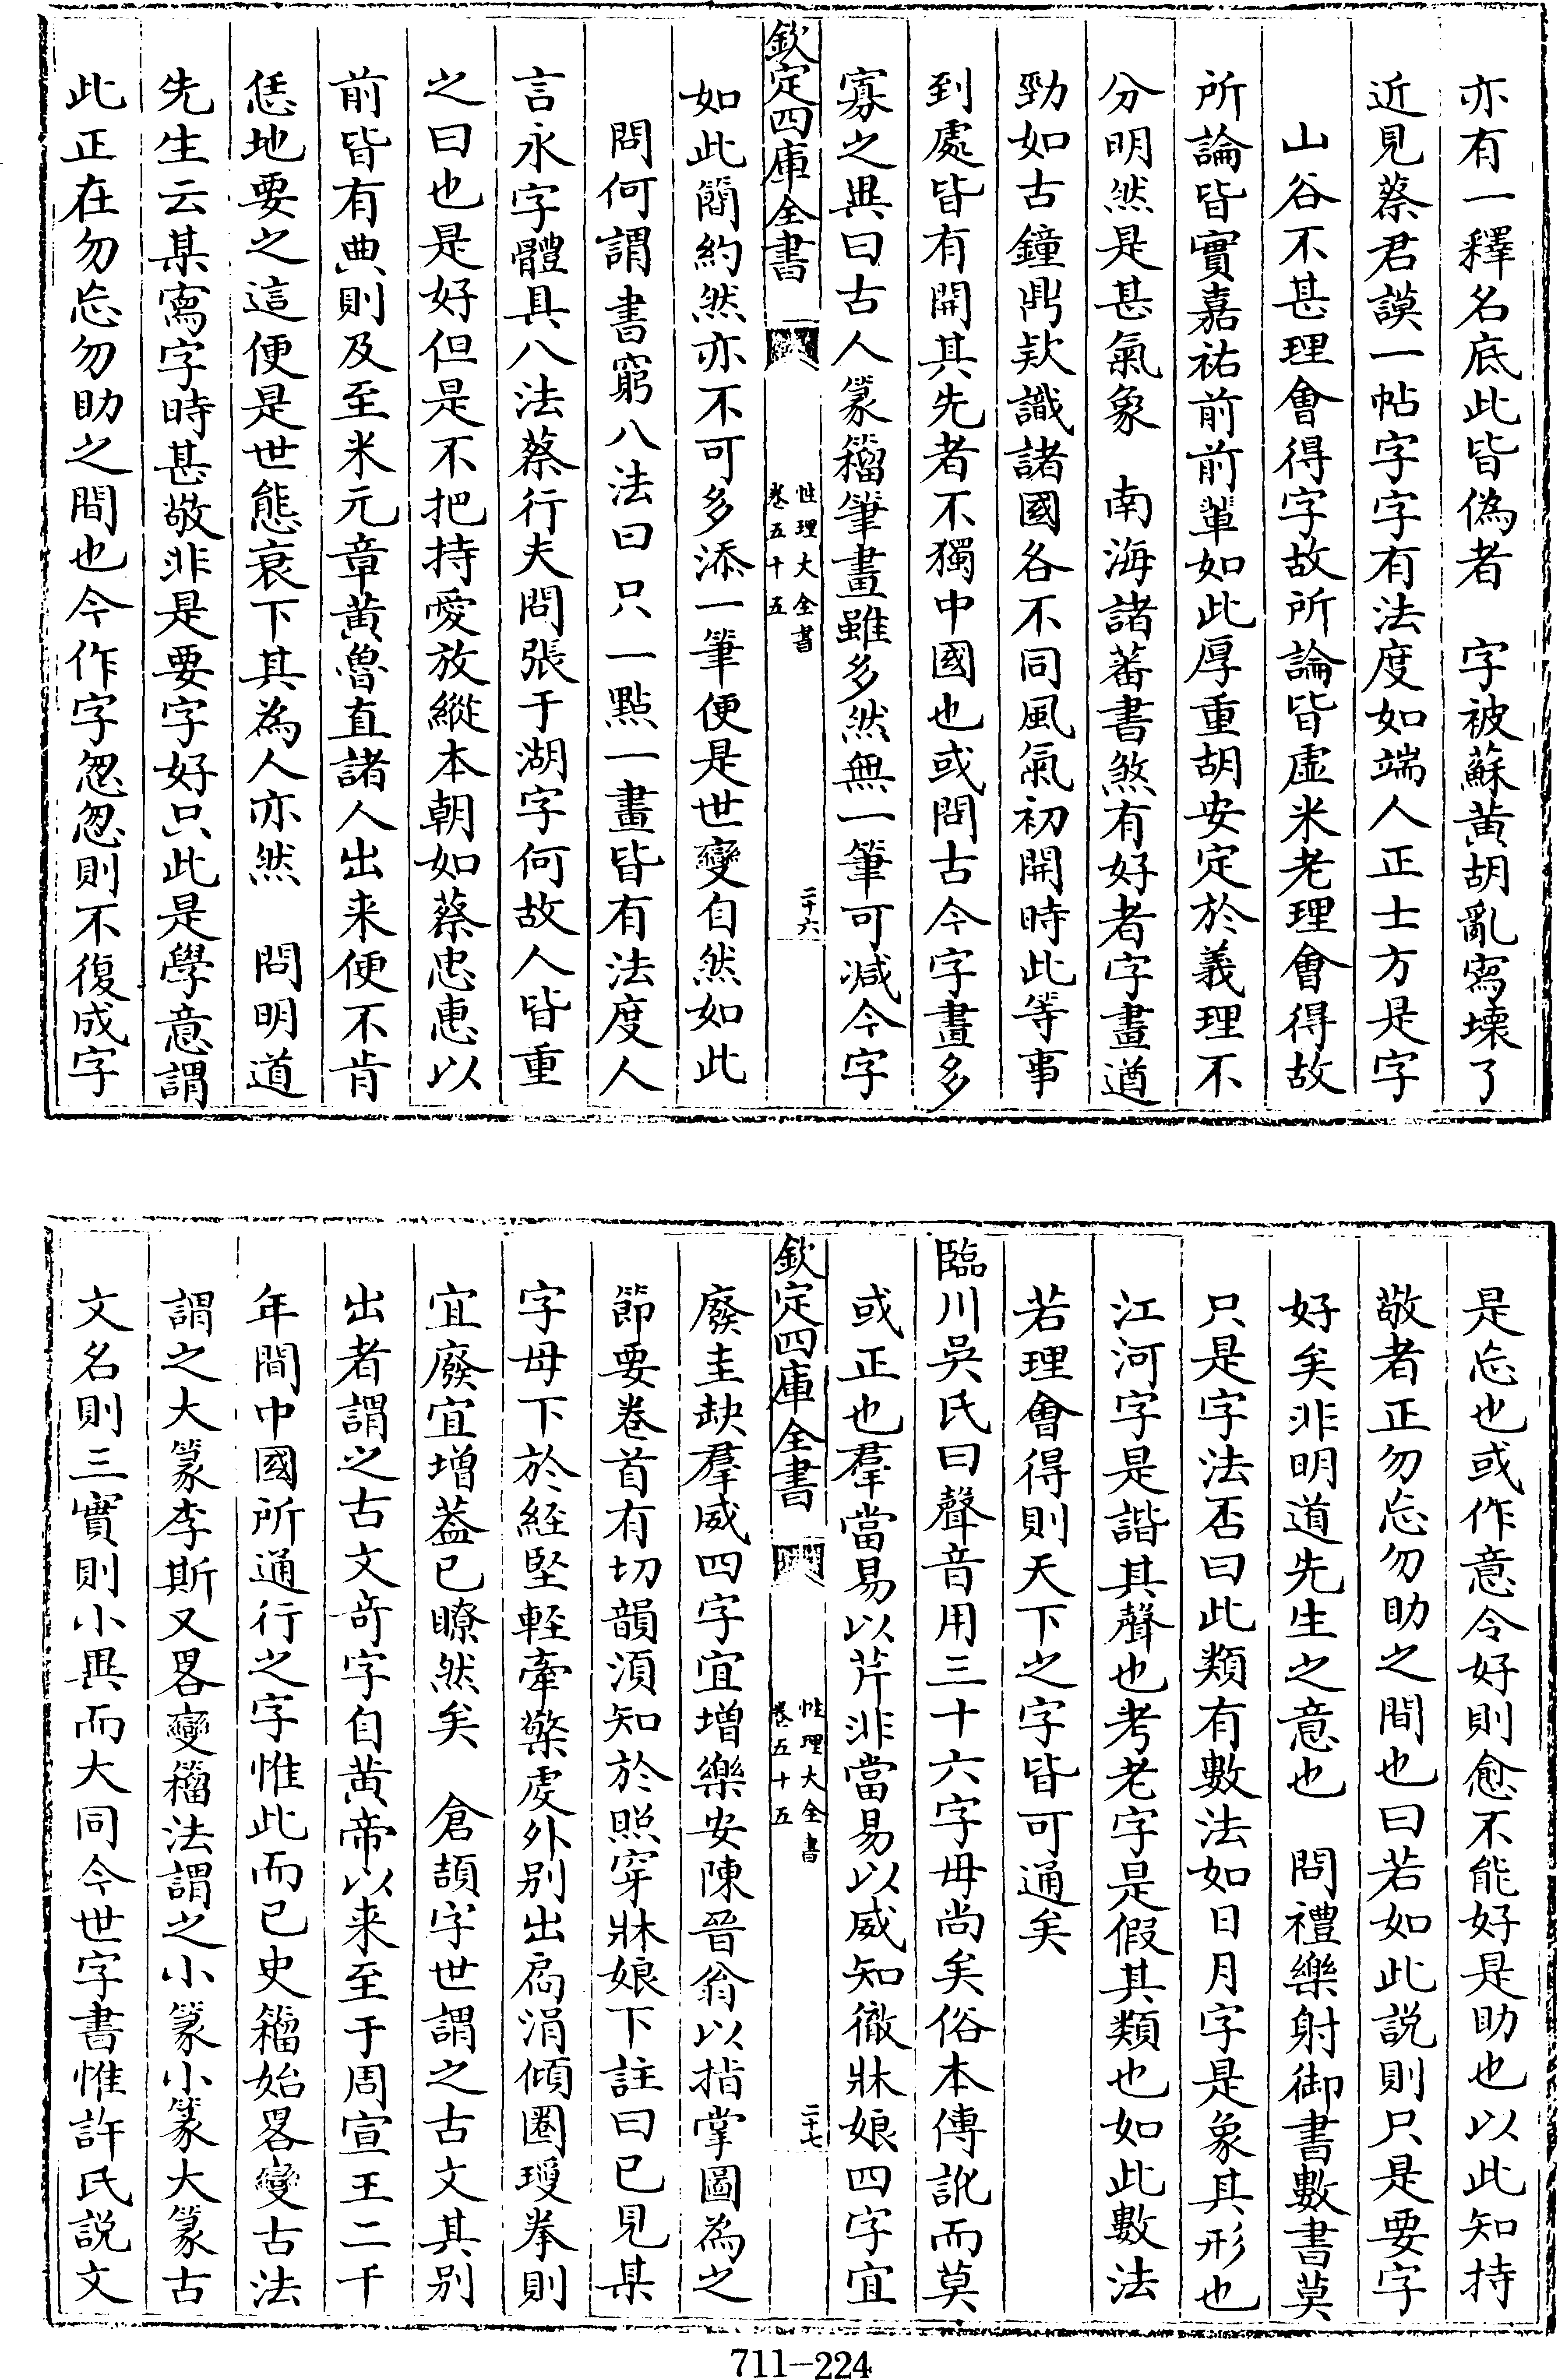 亦有一釋名底此皆偽者　字被蘇黄胡亂寫壊了
近見蔡君謨一帖字字有法度如端人正士方是字
山谷不甚理會得字故所論皆虚米老理會得故
所論皆實嘉祐前前輩如此厚重胡安定於義理不
分明然是甚氣象　南海諸蕃書煞有好者字畫遒
勁如古鐘鼎欵識諸國各不同風氣初開時此等事
到處皆有開其先者不獨中國也或問古今字畫多
寡之異曰古人篆籀筆畫雖多然無一筆可減今字
欽定四庫全書
性理大全書
卷五十五
二十六
如此簡約然亦不可多添一筆便是世變自然如此
問何謂書窮八法曰只一點一畫皆有法度人
言永字體具八法蔡行夫問張于湖字何故人皆重
之曰也是好但是不把持愛放縱本朝如蔡忠惠以
前皆有典則及至米元章黄魯直諸人出来便不肯
恁地要之這便是世態衰下其為人亦然　問明道
先生云某寫字時甚敬非是要字好只此是學意謂
此正在勿忘勿助之間也今作字忽忽則不復成字
是忘也或作意令好則愈不能好是助也以此知持
敬者正勿忘勿助之間也曰若如此説則只是要字
好矣非明道先生之意也　問禮樂射御書數書莫
只是字法否曰此類有數法如日月字是象其形也
江河字是諧其聲也考老字是假其類也如此數法
若理會得則天下之字皆可通矣
臨川吳氏曰聲音用三十六字母尚矣俗本傳訛而莫
或正也羣當易以芹非當易以威知徹牀娘四字宜
欽定四庫全書
性理大全書
卷五十五
二十七
廢圭缺羣威四字宜增樂安陳晉翁以指掌圖為之
節要卷首有切韻湏知於照穿牀娘下註曰已見某
字母下於経堅軽牽檠虔外别出扃涓傾圏瓊拳則
宜廢宜增葢已瞭然矣　倉頡字世謂之古文其别
出者謂之古文竒字自黄帝以来至于周宣王二千
年間中國所通行之字惟此而已史籀始畧變古法
謂之大篆李斯又畧變籀法謂之小篆小篆大篆古
文名則三實則小異而大同今世字書惟許氏説文
711-224